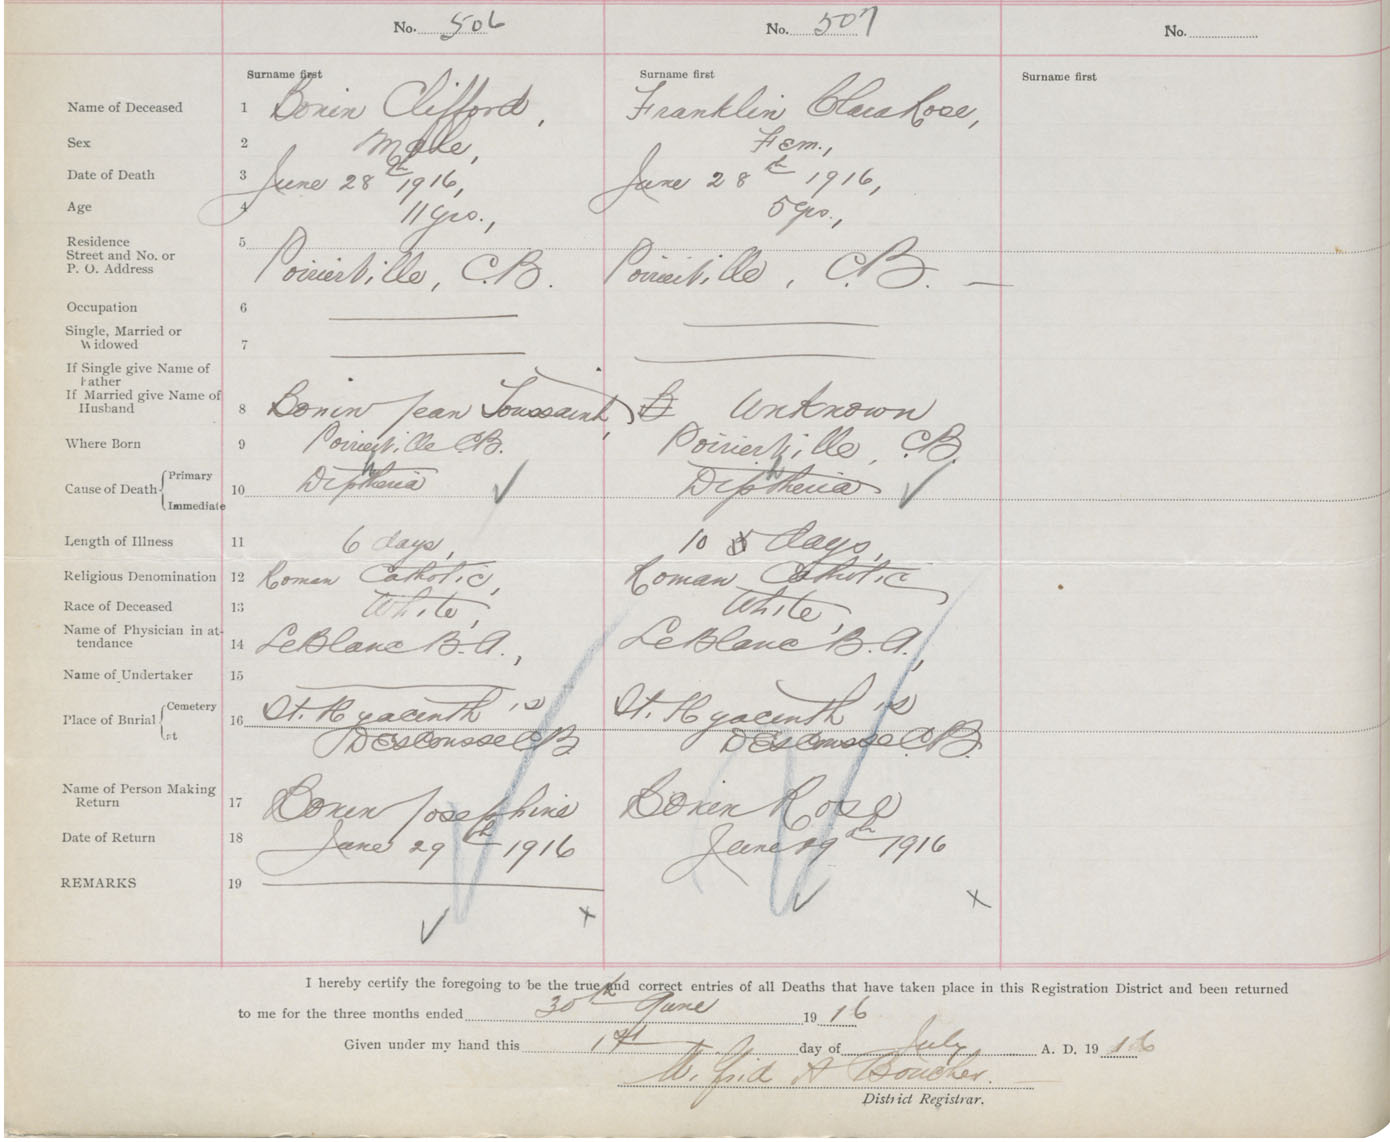 No. 506 No. 507 No.
Surname first Surname first Surname first
Name of Deceased 1 Bonin Clifford, Franklin Clara Rose,
Sex 2 Male, Fem.,
Date of Death 3 June 28th 1916, June 28th 1916,
Age 4 11 yrs., 5 yrs.,
Residence 5
Street and No. or
P. O. Address Poirierville, C.B. Poirierville, C.B. —
Occupation 6
Single, Married or
Widowed 7
If Single give Name of
Father
If Married give Name of
Husband 8 Bonin Jean Toussaint, B Unknown
Where Born 9 Poirierville C.B. Poirierville, C.B.
Cause of Death Primary Diphtheria ✓ Diphtheria ✓
10
Immediate
Length of Illness 11 6 days, 10 5 days,
Religious Denomination 12 Roman Catholic, Roman Catholic,
Race of Deceased 13 White, White,
Name of Physician in at-
tendance 14 LeBlanc B.A., LeBlanc B.A.,
Name of Undertaker 15
Place of Burial Cemetery St. Hyacinth's St. Hyacinth's
16
at DEsCousse C.B. DEsCousse C.B.
Name of Person Making
Return 17 Bonin Josephine Bonin Rose
Date of Return 18 June 29th 1916 June 29th 1916
REMARKS 19
✓ x ✓ x
I hereby certify the foregoing to be the true and correct entries of all Deaths that have taken place in this Registration District and been returned
to me for the three months ended 30th June 1916
Given under my hand this 1st day of July A. D. 1916
Wilfrid A Boucher.
District Registrar.